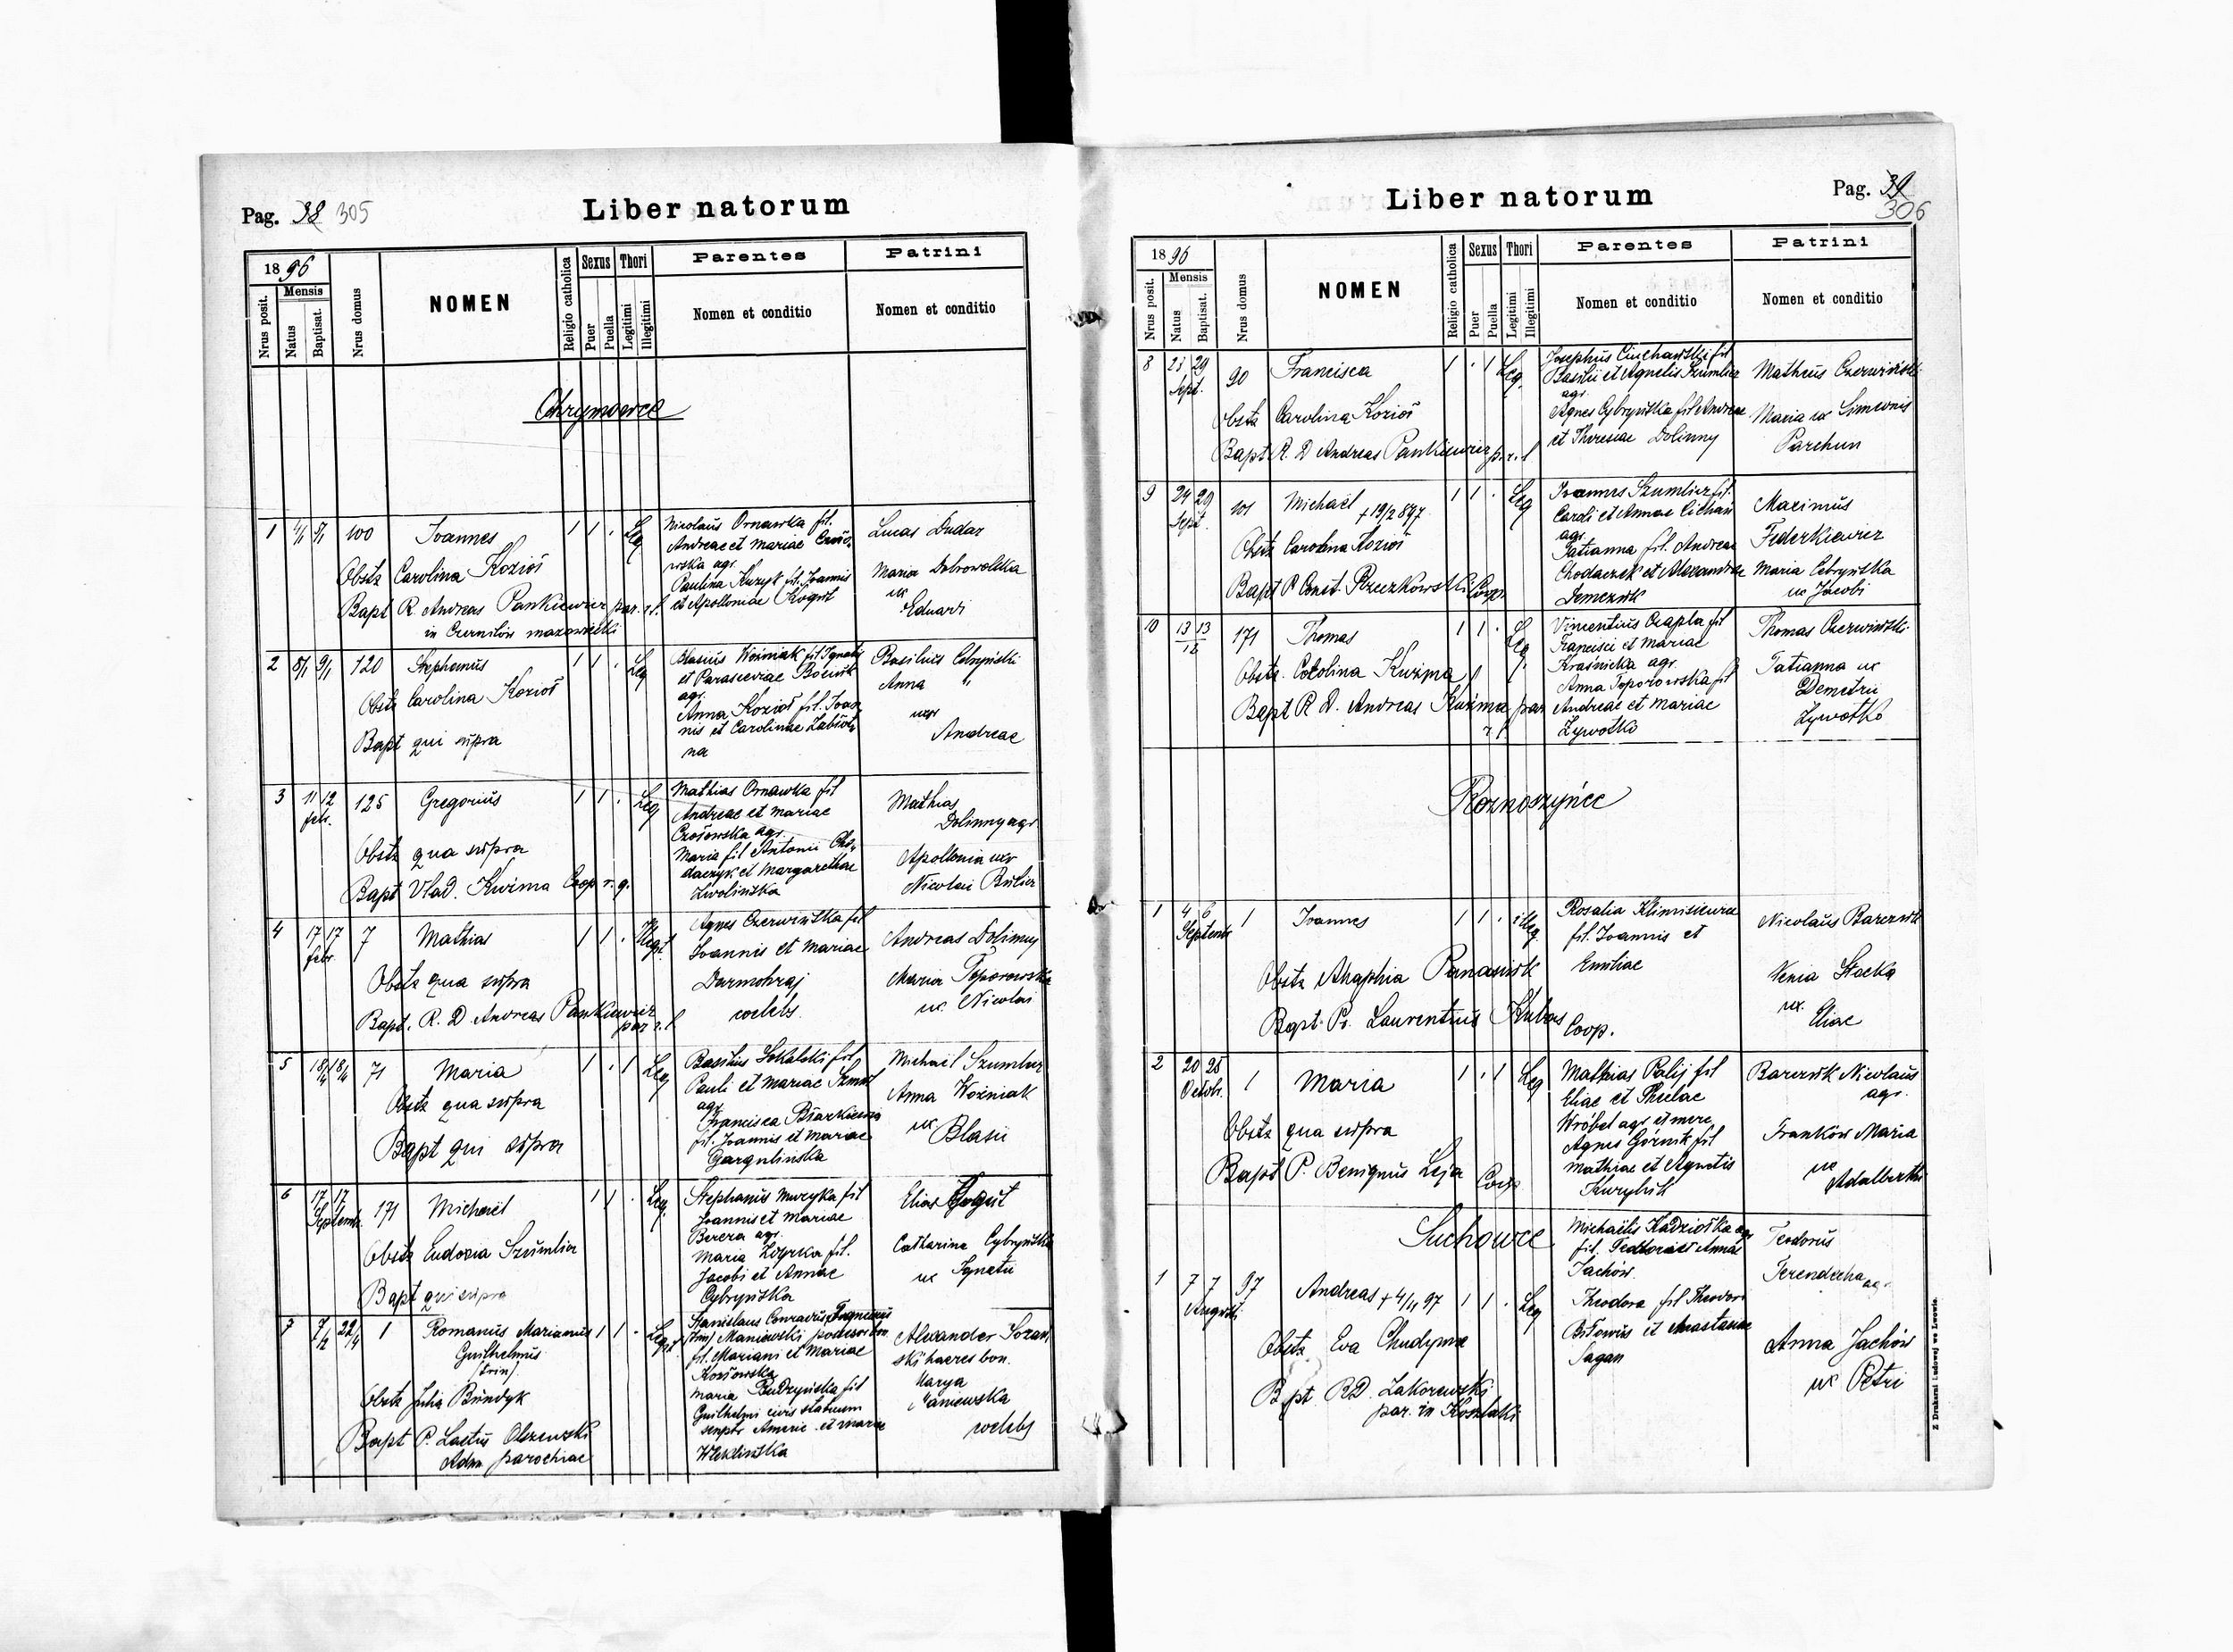 Pag. 38 305
Liber natorum
1896
Nrus posit.
Mensis
Natus
Baptisat.
Nrus domus
NOMEN
Religio catholica
Sexus
Puer
Puella
Thori
Legitimi
Illegitimi
Parentes
Nomen et conditio
Patrini
Nomen et conditio
1 4/1 5/1 100 Joannes 1 1 . Leg
Obstx Carolina Kozioł
Bapt R. Andreas Pankiewicz par. r. l.
in Czernilów mazowiecki
Nicolaus Ornawka fil.
Andreae et Mariae
agr.
Paulina Kuzyk fil. Joannis
et Apolloniae Kogut
Lucas Dudar
Maria Dobrowolska
ux
Eduardi
2 8/1 9/1 120 Stephanus 1 1 . Leg
Obstx Carolina Kozioł
Bapt qui supra
Blasius Woźniak fil Ignatii
et Parasceviae
agr.
Anna Kozioł fil. Joan
nis et Carolinae
na
Basilius Cebryński
Anna "
uxor
Andreae
3 11 12 febr. 125 Gregorius 1 1 . Leg
Obstx qua supra
Bapt Vlad. Kuźma Coop r. g.
Mathias Ornawka fil
Andreae et Mariae
agr.
Maria fil Antonii Cho-
daczyk et Margarethae
Zwolińska
Mathias
Dolinny agr.
Apollonia uxor
Nicolai
4 17 17 febr. 7 Mathias 1 1 . Illegt.
Obstx qua supra
Bapt. R. D Andreas Pankiewicz
par r. l
Agnes Czerwińska fil
Joannis et Mariae
Darmohraj
coelebs.
Andreas Dolinny
Maria Toporowska
ux Nicolai
5 18/4 18/4 71 Maria 1 . 1 Leg
Obstx qua supra
Bapt qui supra
Basilius Sokalski fil
Pauli et Mariae
agr
Francisca
fil. Joannis et Mariae
Gargulińska
Michael Szumlicz
Anna Woźniak
ux
Blasii
6 17 17 Septemb. 171 Michael 1 1 . Leg.
Obstx Eudoxia Szumlicz
Bapt qui supra
Stephanus Muzyka fil
Joannis et Mariae
Berera agr.
Maria fil.
Jacobi et Annae
Cybryńska
Elias Kogut
Catharina Cybryńska
ux Ignatii
7 7/2 22/4 1 Romanus Marianus 1 1 . Legt.
Guilhelmus
(trin)
Obstx Julia Bundyk
Bapt P. Laetus Olszewski
Adm parochiae
Stanislaus Conradus Eugenius
(trin) Maniewski possesor bon.
fil. Mariani et Mariae
Kossowska
Maria Budzyńska fil
Guilhelmi civis statuum
Americ. et Mariae
Weklińska
Alexander
ski haeres bon.
Marya
Maniewska
coelebs
Liber natorum
Pag. 39
306
1896
Nrus posit.
Mensis
Natus
Baptisat.
Nrus domus
NOMEN
Religio catholica
Sexus
Puer
Puella
Thori
Legitimi
Illegitimi
Parentes
Nomen et conditio
Patrini
Nomen et conditio
8 23 29 Sept. 90 Francisca 1 . 1 Leg.
Obstx Carolina Kozioł
Bapt R. D Andreas Pankiewicz p. r. l
Josephus fil
Basilii et Agnetis Szumlicz
agr.
Agnes Cybryńska fil Andreae
et Theresiae Dolinny
Matheus Czerwiński
Maria ux Simeonis
Parchun
9 24 29 Sept. 101 Michael 1 1 . Leg
+ 19/2 897
Obstx Carolina Kozioł
Bapt P. Const. Rzeczkowski Coop.
Joannes Szumlicz fil.
Caroli et Annae
agr.
Tatianna fil. Andreae
Chodaczek et Alexandrae
Demczuk
Maximus
Federkiewicz
Maria Cebryńska
ux Jacobi
10 13 13 12 171 Thomas 1 1 . Leg.
Obstx. Kuźma
Bapt R. D. Andreas Kuźma par
r. l.
Vincentius Czapla fil
Francisci et Mariae
Kraśnicka agr.
Anna Toporowska fil
Andreae et Mariae
Zywotko
Thomas Czerwiński
Tatianna ux
Demetrii
Zywotko
Rożnoszyńce
1 4 6 Septemb 1 Joannes 1 1 . illeg.
Obstx Ahaphia Panasiuk
Bapt. Ps. Laurentius Kubas Coop.
Rosalia
fil. Joannis et
Emiliae
Nicolaus Barczuk
Xenia
ux.
Eliae
2 20 25 Octobr. 1 Maria 1 . 1 Leg
Obstx qua supra
Bapt P. Benignus Leja Coop
Mathias Palij fil
Eliae et Theclae
Wróbel agr et merc
Agnes Górnik fil
Mathiae et Agnetis
Kuryluk
Barczuk Nicolaus
agr.
Franków Maria
ux
Adalberti
Suchowce
1 7 7 Augusti 97 Andreas + 4/11 97 1 1 . Leg
Obstx Eva Chudyma
Bapt RD. Zakrzewski
par. in Koszlaki
Michaelis agr
fil. Teodori et Annae
Jachów.
Theodora fil Theodori
et Anastasiae
Sagan
Teodorus
Terendecha agr.
Anna Jachów
ux Petri
Z Drukarni Ludowej we Lwowie.